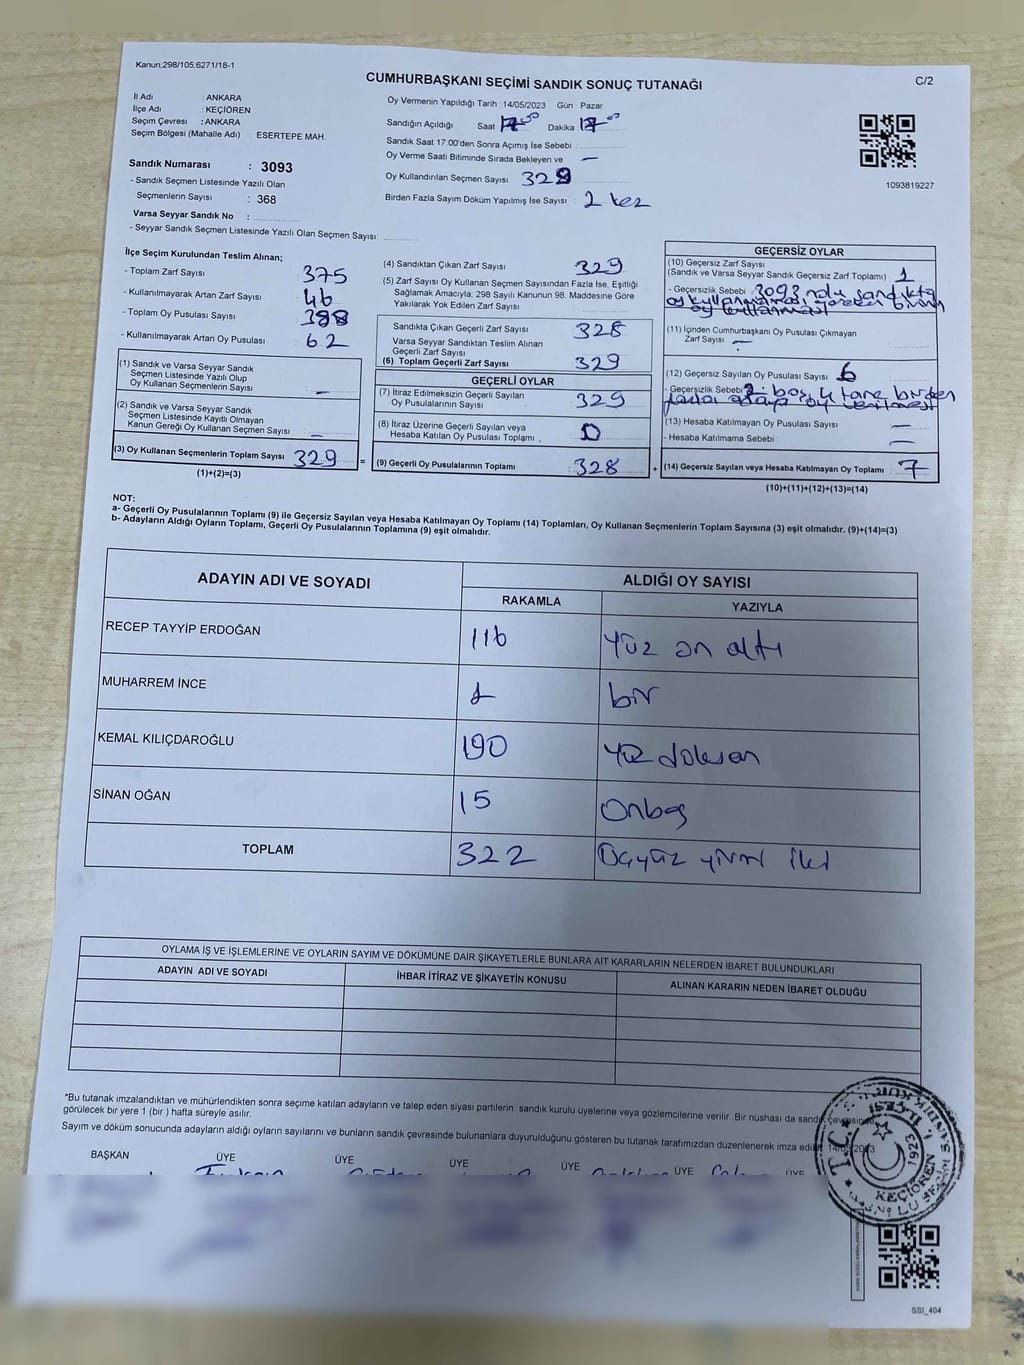 Kanun;298/105;6271/18-1
CUMHURBAŞKANI SEÇİMİ SANDIK SONUÇ TUTANAĞI
C/2
İl Adı : ANKARA
İlçe Adı : KEÇİÖREN
Seçim Çevresi : ANKARA
Seçim Bölgesi (Mahalle Adı) : ESERTEPE MAH.
Sandık Numarası : 3093
- Sandık Seçmen Listesinde Yazılı Olan
Seçmenlerin Sayısı : 368
Varsa Seyyar Sandık No :
- Seyyar Sandık Seçmen Listesinde Yazılı Olan Seçmen Sayısı:
Oy Vermenin Yapıldığı Tarih : 14/05/2023 Gün : Pazar
Sandığın Açıldığı Saat 17 00 Dakika 17 00
Sandık Saat 17:00'den Sonra Açılmış İse Sebebi :
Oy Verme Saati Bitiminde Sırada Bekleyen ve —
Oy Kullandırılan Seçmen Sayısı 329
Birden Fazla Sayım Döküm Yapılmış İse Sayısı : 2 kez
1093819227
İlçe Seçim Kurulundan Teslim Alınan;
- Toplam Zarf Sayısı : 375
- Kullanılmayarak Artan Zarf Sayısı : 46
- Toplam Oy Pusulası Sayısı : 388
- Kullanılmayarak Artan Oy Pusulası : 62
(1) Sandık ve Varsa Seyyar Sandık
Seçmen Listesinde Yazılı Olup
Oy Kullanan Seçmenlerin Sayısı : —
(2) Sandık ve Varsa Seyyar Sandık
Seçmen Listesinde Kayıtlı Olmayan
Kanun Gereği Oy Kullanan Seçmen Sayısı : —
(3) Oy Kullanan Seçmenlerin Toplam Sayısı : 329 =
(1)+(2)=(3)
(4) Sandıktan Çıkan Zarf Sayısı : 329
(5) Zarf Sayısı Oy Kullanan Seçmen Sayısından Fazla İse, Eşitliği
Sağlamak Amacıyla; 298 Sayılı Kanunun 98. Maddesine Göre
Yakılarak Yok Edilen Zarf Sayısı :
Sandıkta Çıkan Geçerli Zarf Sayısı : 328
Varsa Seyyar Sandıktan Teslim Alınan
Geçerli Zarf Sayısı :
(6) Toplam Geçerli Zarf Sayısı : 329
GEÇERLİ OYLAR
(7) İtiraz Edilmeksizin Geçerli Sayılan
Oy Pusulalarının Sayısı : 329
(8) İtiraz Üzerine Geçerli Sayılan veya
Hesaba Katılan Oy Pusulası Toplamı : 0
(9) Geçerli Oy Pusulalarının Toplamı : 328 +
GEÇERSİZ OYLAR
(10) Geçersiz Zarf Sayısı
(Sandık ve Varsa Seyyar Sandık Geçersiz Zarf Toplamı) : 1
- Geçersizlik Sebebi : 3093 nolu sandıkta
oy kullanmaması gereken birinin
oy kullanması
(11) İçinden Cumhurbaşkanı Oy Pusulası Çıkmayan
Zarf Sayısı : —
(12) Geçersiz Sayılan Oy Pusulası Sayısı : 6
- Geçersizlik Sebebi : 2 boş, 4 tane birden
fazla adaya oy verilmesi
(13) Hesaba Katılmayan Oy Pusulası Sayısı : —
- Hesaba Katılmama Sebebi : —
(14) Geçersiz Sayılan veya Hesaba Katılmayan Oy Toplamı : 7
(10)+(11)+(12)+(13)=(14)
NOT:
a- Geçerli Oy Pusulalarının Toplamı (9) ile Geçersiz Sayılan veya Hesaba Katılmayan Oy Toplamı (14) Toplamları, Oy Kullanan Seçmenlerin Toplam Sayısına (3) eşit olmalıdır. (9)+(14)=(3)
b- Adayların Aldığı Oyların Toplamı, Geçerli Oy Pusulalarının Toplamına (9) eşit olmalıdır.
ADAYIN ADI VE SOYADI ALDIĞI OY SAYISI
RAKAMLA YAZIYLA
RECEP TAYYİP ERDOĞAN 116 Yüz on altı
MUHARREM İNCE 1 bir
KEMAL KILIÇDAROĞLU 190 Yüz doksan
SİNAN OĞAN 15 Onbeş
TOPLAM 322 Üçyüz yirmi iki
OYLAMA İŞ VE İŞLEMLERİNE VE OYLARIN SAYIM VE DÖKÜMÜNE DAİR ŞİKAYETLERLE BUNLARA AİT KARARLARIN NELERDEN İBARET BULUNDUKLARI
ADAYIN ADI VE SOYADI İHBAR İTİRAZ VE ŞİKAYETİN KONUSU ALINAN KARARIN NEDEN İBARET OLDUĞU
"Bu tutanak imzalandıktan ve mühürlendikten sonra seçime katılan adayların ve talep eden siyasi partilerin sandık kurulu üyelerine veya gözlemcilerine verilir .Bir nüshası da sandık çevresinde
görülecek bir yere 1 (bir ) hafta süreyle asılır.
Sayım ve döküm sonucunda adayların aldığı oyların sayılarını ve bunların sandık çevresinde bulunanlara duyurulduğunu gösteren bu tutanak tarafımızdan düzenlenerek imza edildi. 14/05/2023
BAŞKAN ÜYE ÜYE ÜYE ÜYE ÜYE ÜYE
T.C.
1923
KEÇİÖREN
SSI_404